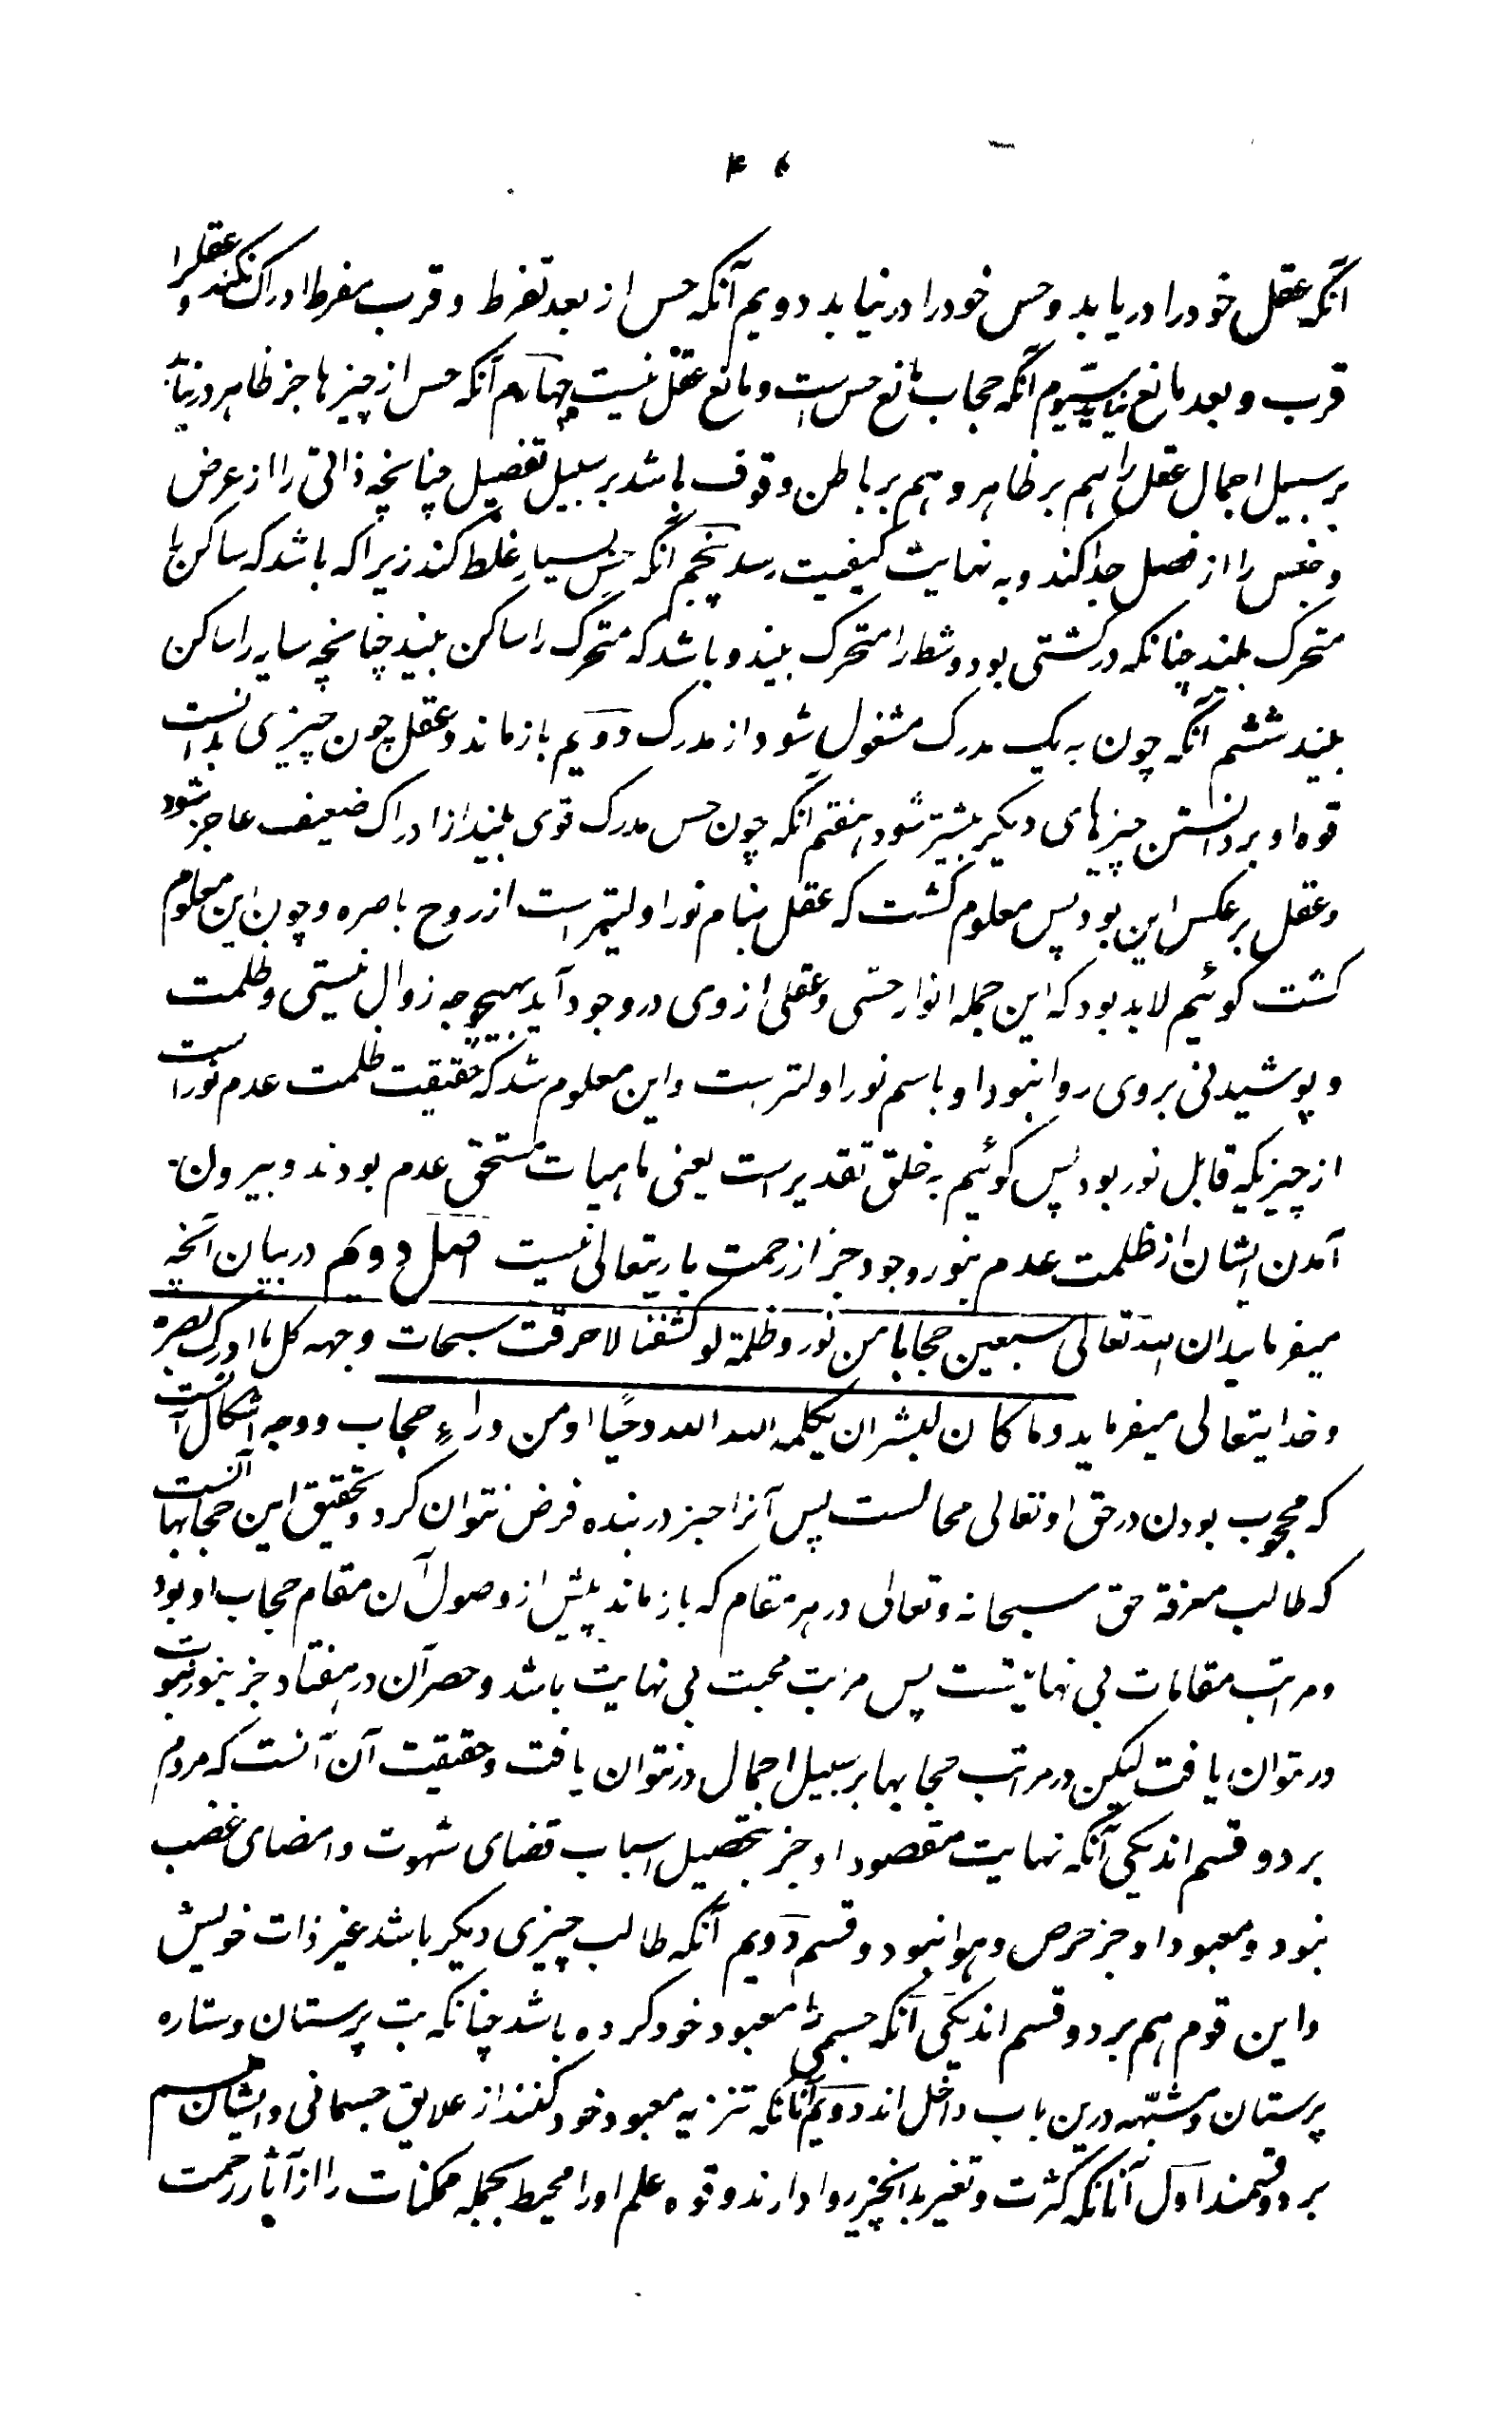 آنکه عقل خود را دریابد و حس خود را درنیابد دویم آنکه حس از بعد تفرط و قرب مفرط ادراک نکند و عقلرا
قرب و بعد مانع نیاید سیّوم آنکه حجاب مانع حس است و مانع عقل نیست چهارم آنکه حس از چیزها جز ظاهر درنیابد
بر سبیل اجمال عقل را هم بر ظاهر و هم بر باطن وقوف باشد بر سبیل تفصیل چنانچه ذاتی را از عرض
و جنس را از فصل جدا کند و به نهایت کیفیت رسد پنجم آنکه حس بسیار غلط کند زیرا که باشد که ساکن را
متحرک بیند چنانکه در کشتی بود و شط را متحرک بیند و باشد که متحرک را ساکن بیند چنانچه سایه را ساکن
بیند ششم آنکه چون به یک مدرک مشغول شود از مدرک دویم بازماند و عقل چون چیزی بدانست
قوه او بر دانستن چیزهای دیکر بیشتر شود هفتم آنکه چون حس مدرک قوی بیند از ادراک ضعیف عاجز شود
و عقل برعکس این بود پس معلوم کشت که عقل بنام نور اولیتر است از روح باصره و چون این معلوم
کشت کوئیم لابد بود که این جمله انوار حسّی و عقلی از وی در وجود آید بهیچوجه زوال نیستی و ظلمت
و پوشیدنی بر وی روا نبود او باسم نور اولتر است و این معلوم شد که حقیقت ظلمت عدم نور است
از چیزیکه قابل نور بود پس کوئیم به خلق تقدیر است یعنی ماهیات مستحق عدم بودند و بیرون
آمدن ایشان از ظلمت عدم بنور وجود جز از رحمت باریتعالی نیست اصل دویم در بیان آنچه
میفرماید ان الله تعالی سبعین حجابا من نور و ظلمة لو کشفها لاحرقت سبحات وجهه کل ما ادرک بصره
و خدایتعالی میفرماید و ما کان لبشر ان یکلمه الله الا وحیًا او من وراء حجاب و وجه اشکال آنست
که محجوب بودن در حق او تعالی محالست پس آنرا جز در بنده فرض نتوان کرد و تحقیق این حجابها آنست
که طالب معرفة حق سبحانه و تعالی در هر مقام که بازماند پیش از وصول آن مقام حجاب او بود
و مراتب مقامات بی نهایتست پس مراتب محبت بی نهایت باشد و حصر آن در هفتاد جز بنور نبوت
در نتوان یافت لیکن در مراتب حجابها بر سبیل اجمال در نتوان یافت و حقیقت آن آنست که مردم
بر دو قسم اند یکی آنکه نهایت مقصود او جز تحصیل اسباب قضای شهوت و امضای غضب
نبود و معبود او جز حرص و هوا نبود و قسم دویم آنکه طالب چیزی دیکر باشد غیر ذات خویش
و این قوم هم بر دو قسم اند یکی آنکه جسمی را معبود خود کرده باشد چنانکه بت پرستان و ستاره
پرستان و مشبّهه درین باب داخل اند دویم آنانکه تنزیه معبود خود کنند از علایق جسمانی و ایشان هم
بر دو قسمند اول آنانکه کثرت و تغیر بدانچیز روا دارند و قوه علم او را محیط بجمله ممکنات را از آثار رحمت